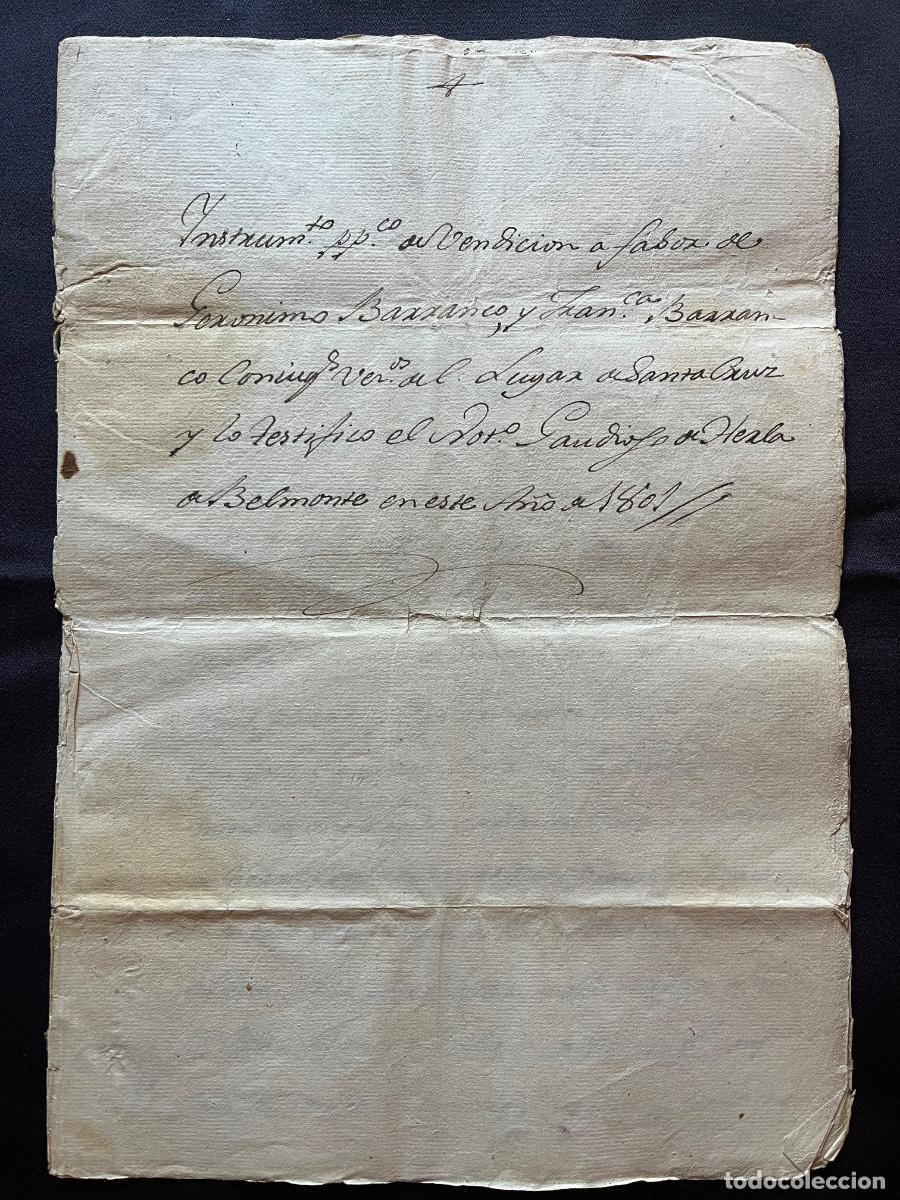 Instrum.to pp.co de Vendicion a fabor de
Geronimo Barranco, y Fran.ca Barran-
co Coniug.s Vez.os del Lugar de Santa Cruz
y lo testifico el Not.o Gaudioso de Herla
de Belmonte en este Año de 1801//
todocoleccion